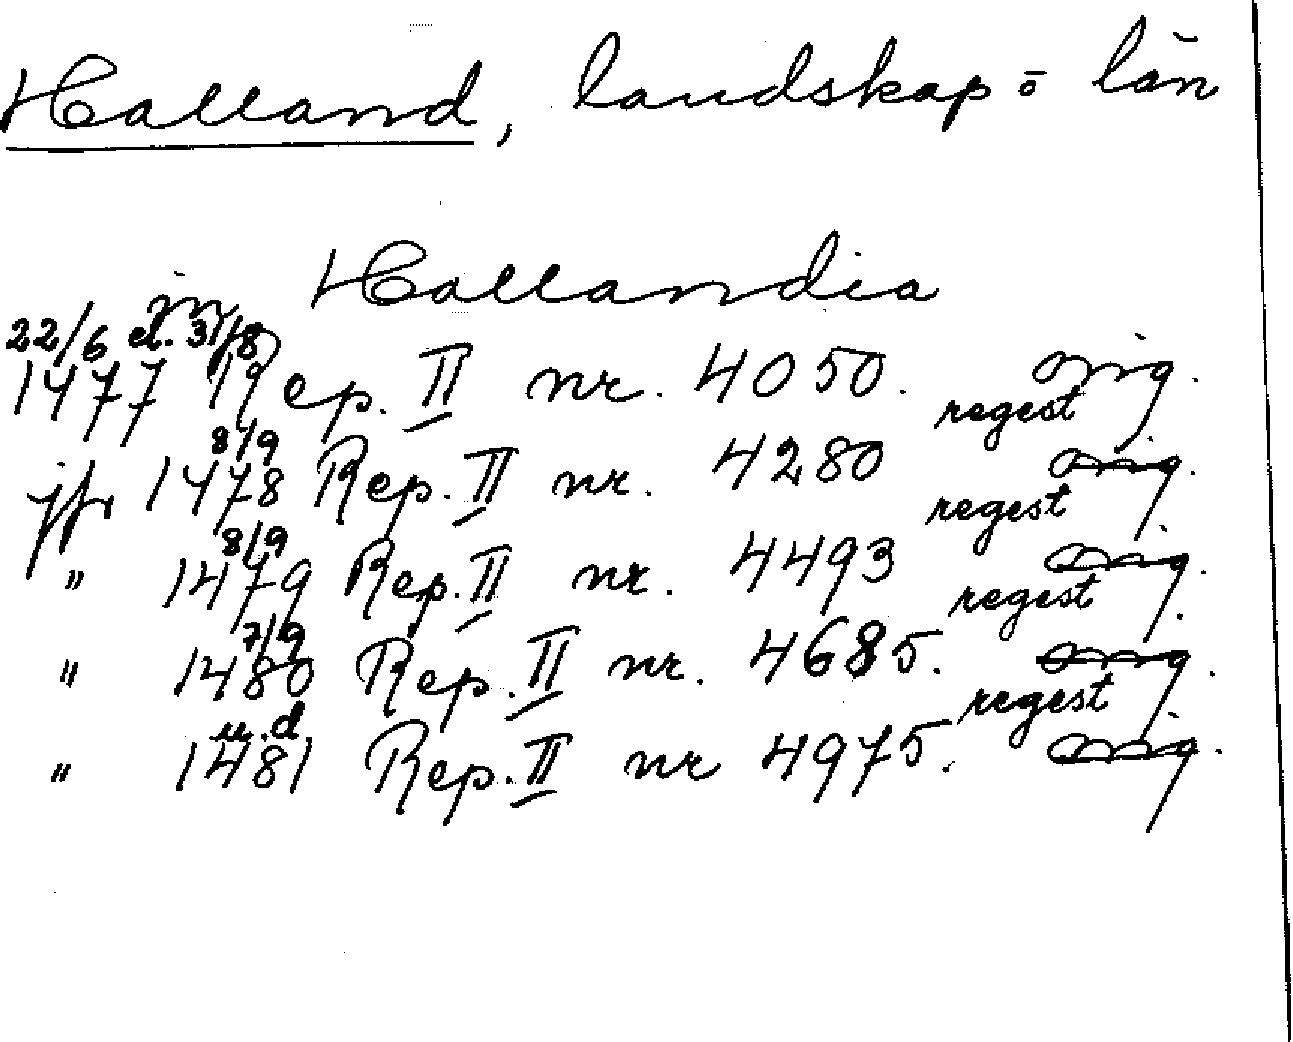 Halland, landskap o län
in Hallandia
22/6 el. 31/8
1477 Rep. II nr. 4050. orig.
regest
8/9
jfr 1478 Rep. II nr. 4280 orig.
regest
8/9
" 1479 Rep. II nr. 4493 orig.
regest
7/9
" 1480 Rep. II nr. 4685. orig.
regest
u.d.
" 1481 Rep. II nr 4975. orig.